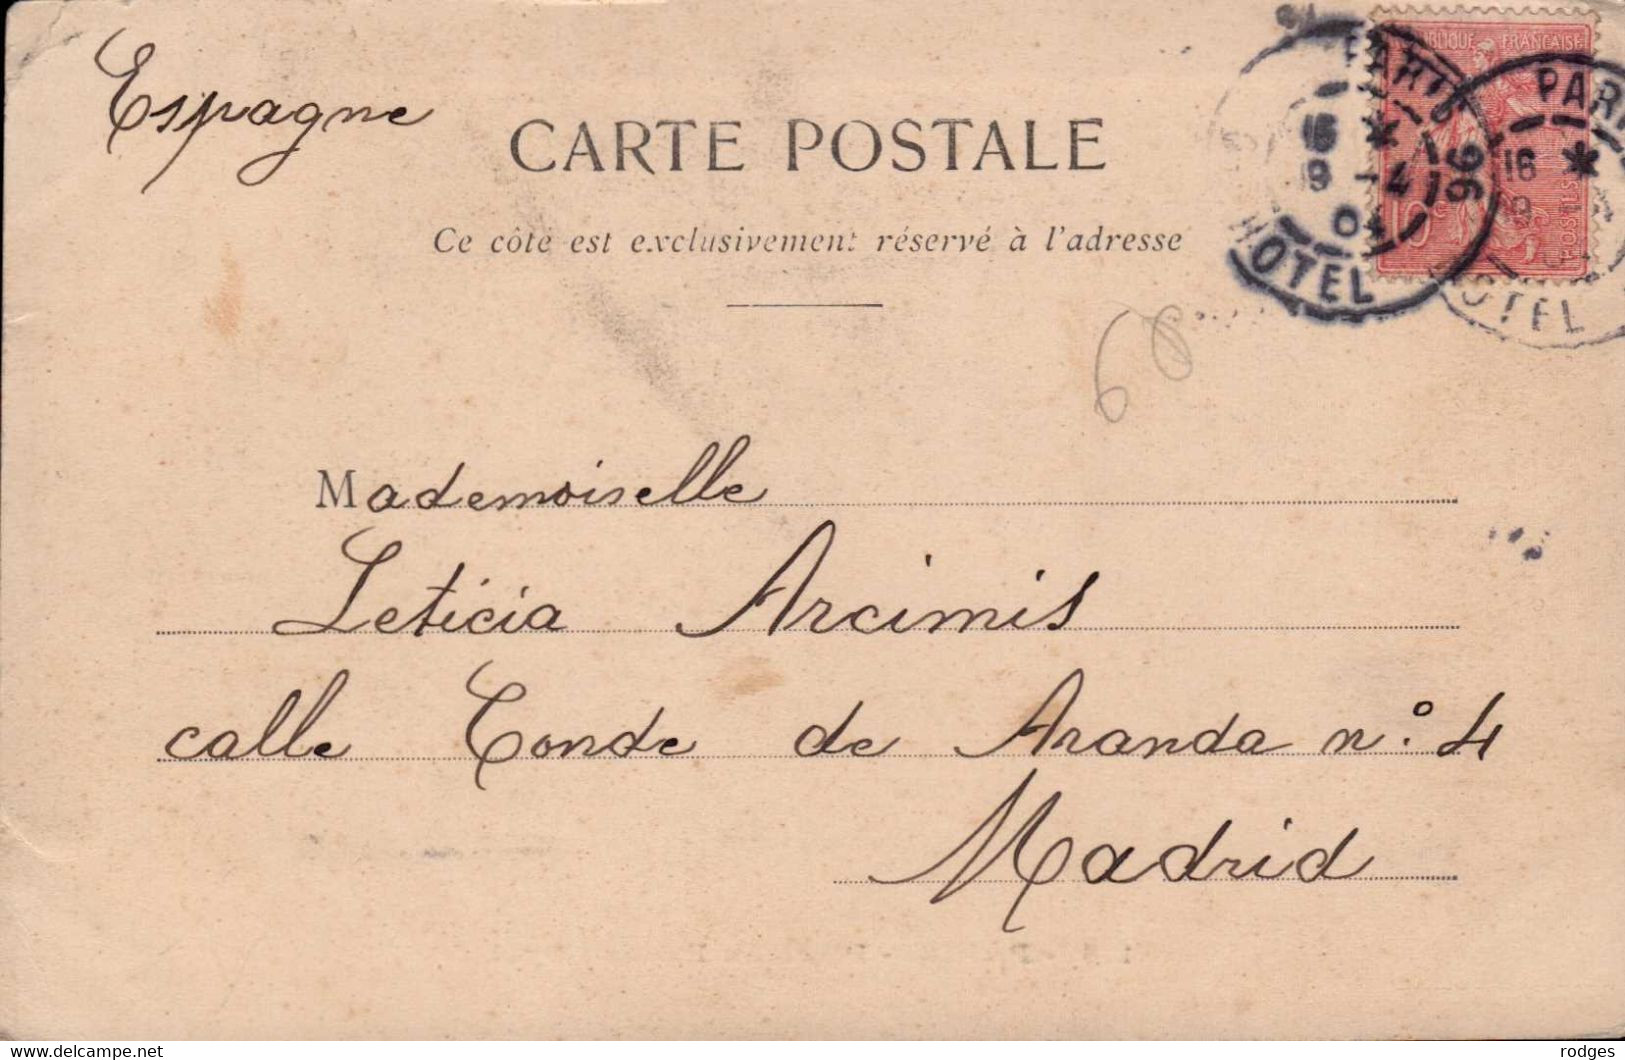 Espagne
CARTE POSTALE
Ce côté est exclusivement réservé à l'adresse
RÉPUBLIQUE FRANÇAISE
10c
POSTES
PARIS 96
16 *
9 -4
04
HOTEL
PARI
16 *
9
OTEL
68
Mademoiselle
Leticia Arcimis
calle Conde de Aranda nº 4
Madrid
https://www.delcampe.net
rodges